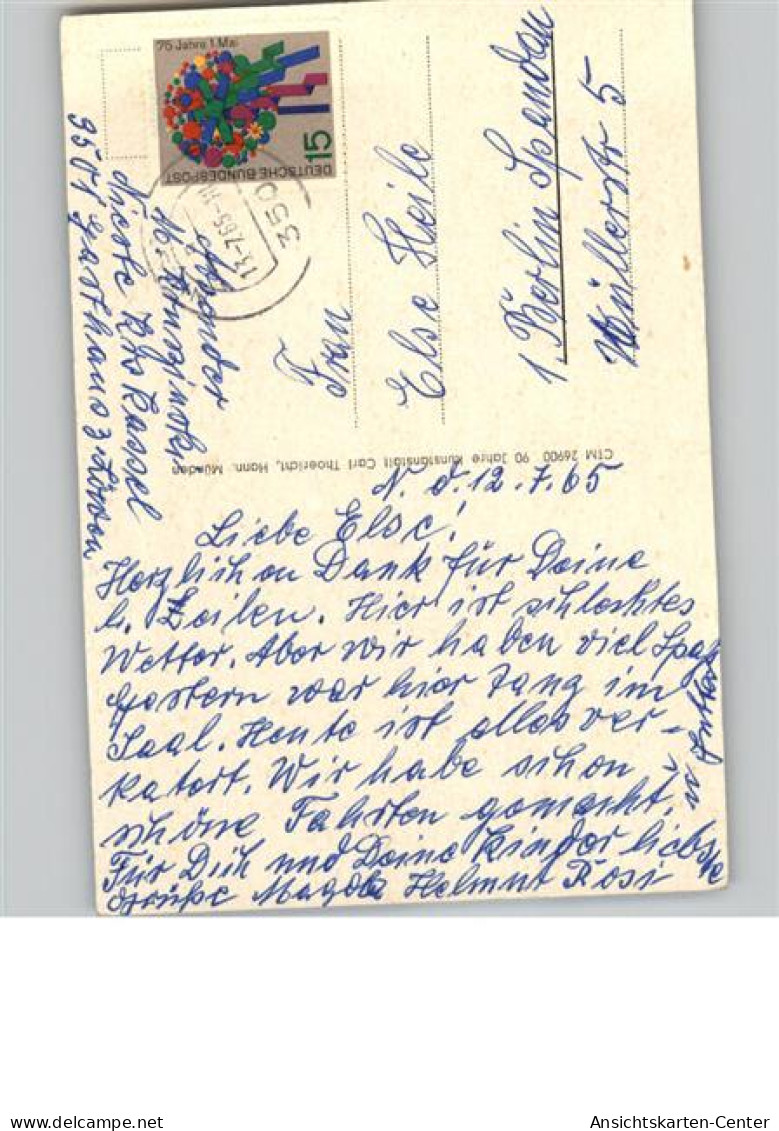 75 Jahre 1. Mai
15
DEUTSCHE BUNDESPOST
350
13.-7.65
Absender
Kreis Kassel
3501 Gasthaus z. Krone
Frau
Else Heile
1 Berlin Spandau
Müllerstr 5
CTM 26900 90 Jahre Kunstanstalt Carl Thoericht, Hann. Münden
N. d. 12.7.65
Liebe Else!
Herzlichen Dank für Deine
l. Zeilen. Hier ist schlechtes
Wetter. Aber wir haben viel Spaß
Gestern war hier Tanz im
Saal. Heute ist alles ver-
katert. Wir habe schon
schöne Fahrten gemacht.
Für Dich und Deine Kinder liebste
Grüße Magda Helmut Rosi
u